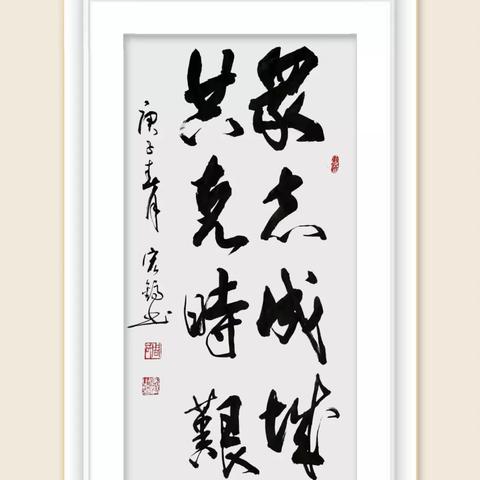 眾志成城
共克時艱
庚子春月 宏錦书